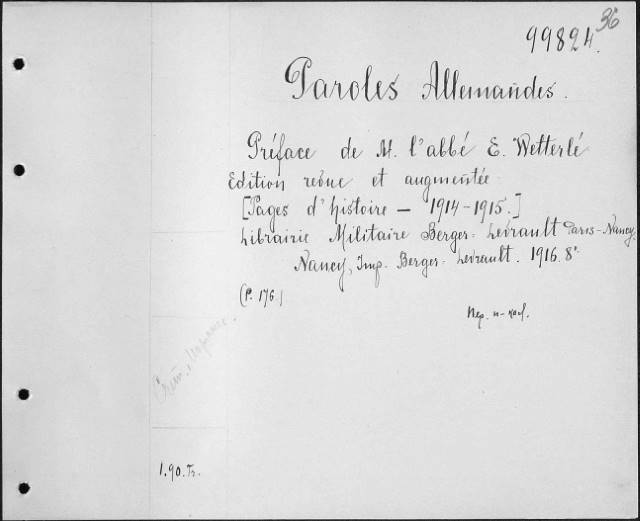 36
99824.
Paroles Allemandes.
Préface de M. l'abbé E. Wetterlé
Edition revue et augmentée
[Pages d'histoire — 1914-1915.]
Librairie Militaire Berger=Levrault Paris-Nancy.
Nancy, Imp. Berger=Levrault. 1916. 8°
(P. 176.)
1.90.Fr.